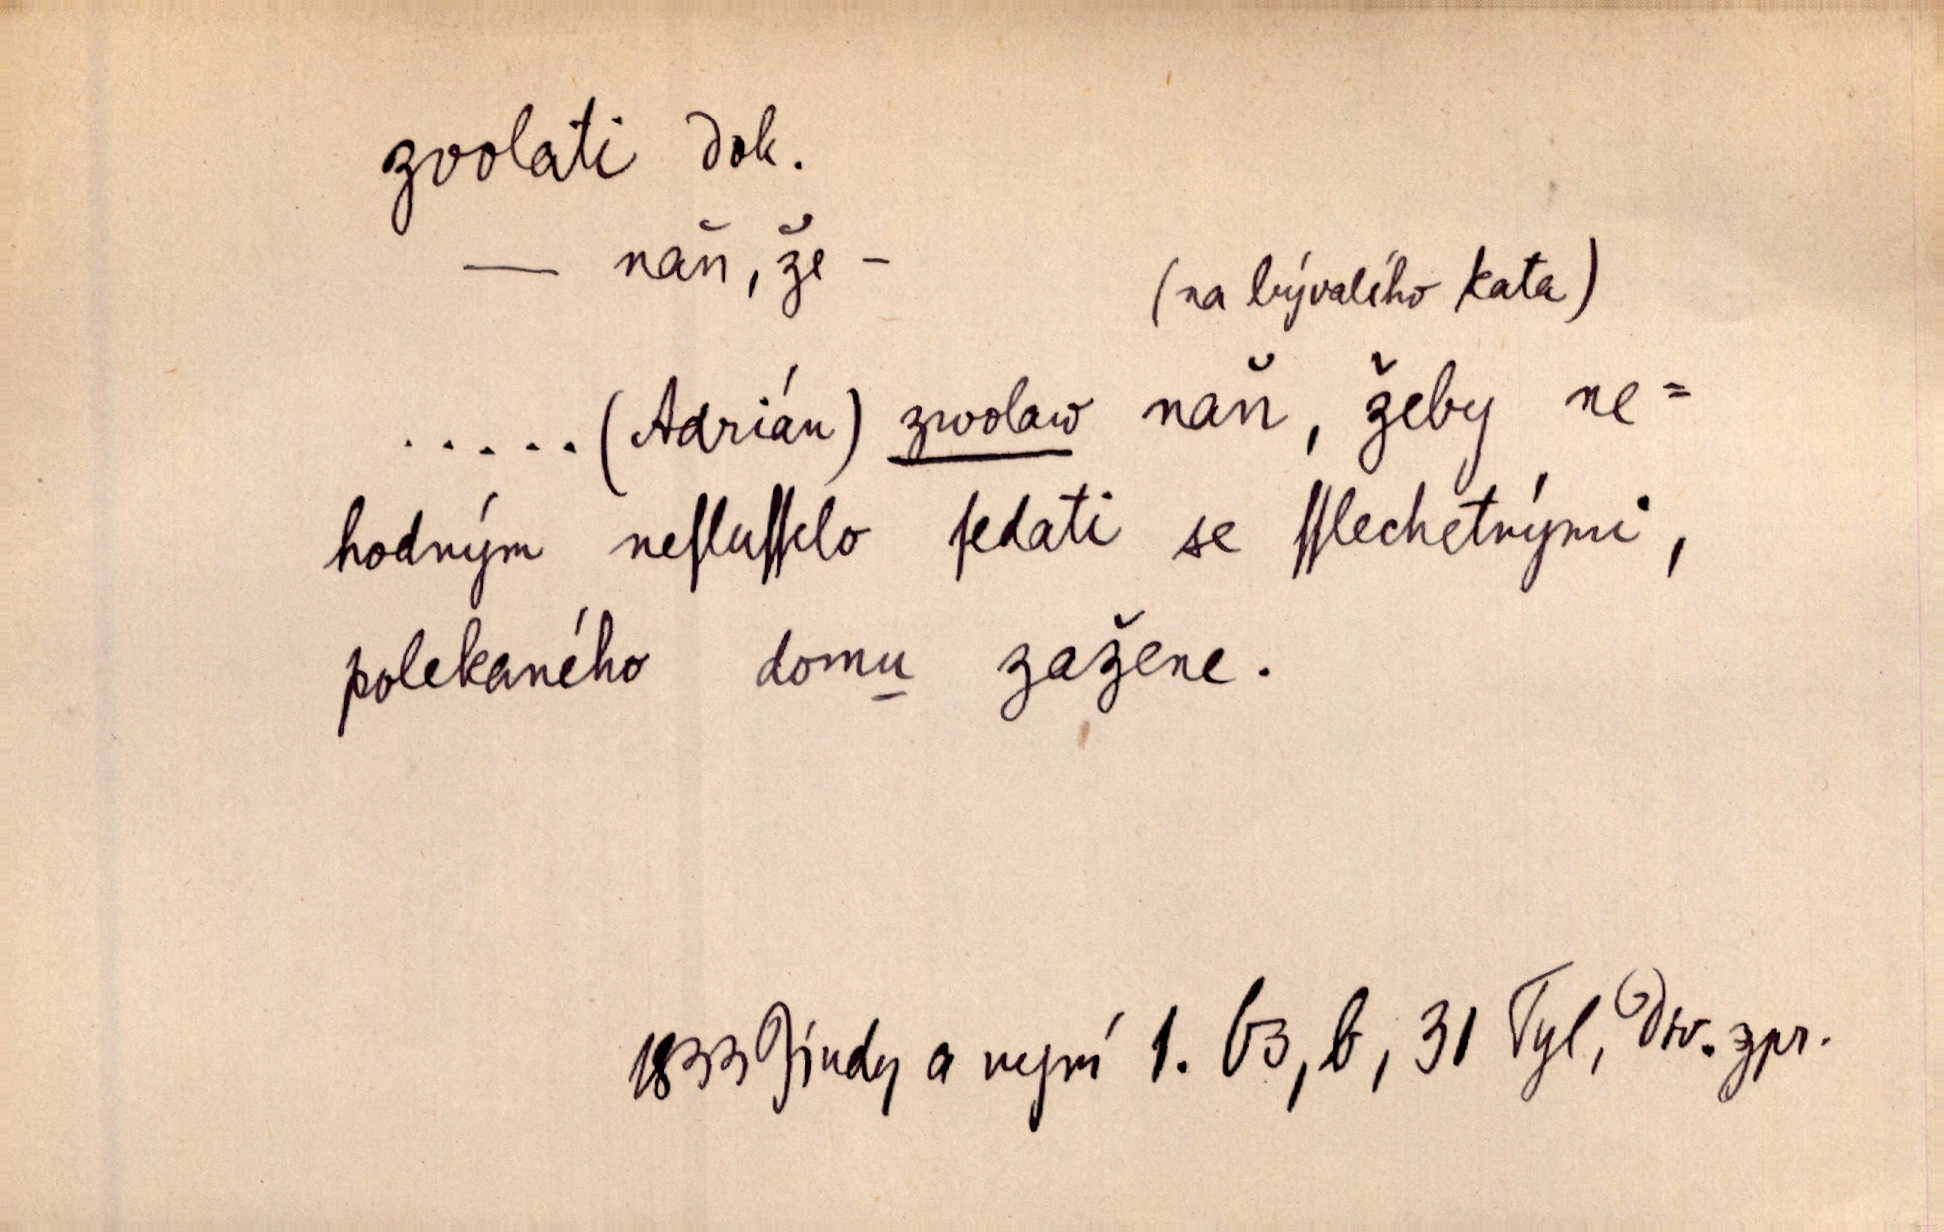 zvolati dok.
— naň, že –
(na bývalého kata)
..... (Adrián) zwolaw naň, žeby ne=
hodným neſluſſelo ſedati se ſſlechetnými,
polekaného domu zažene.
1833 Jindy a nyní 1. 63, b, 31 Tyl, Div. zpr.